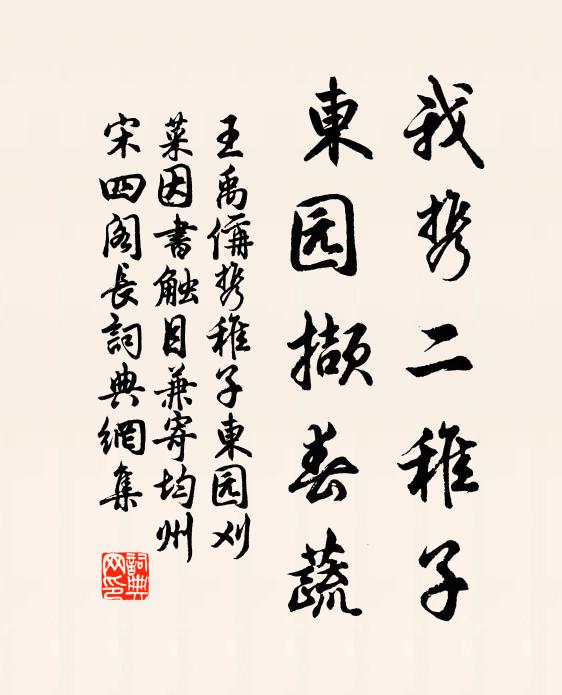 我携二稚子
東园擷春蔬
王禹偁携稚子東园刈
菜因書触目兼寄均州
宋四阁長詞典網集
詞典
网印